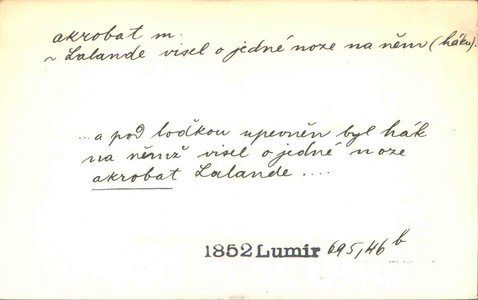 akrobat m.
~ Lalande visel o jedné noze na něm (háku).
...a pod loďkou upevněn byl hák
na němž visel o jedné noze
akrobat Lalande ....
1852 Lumir 695,46 b